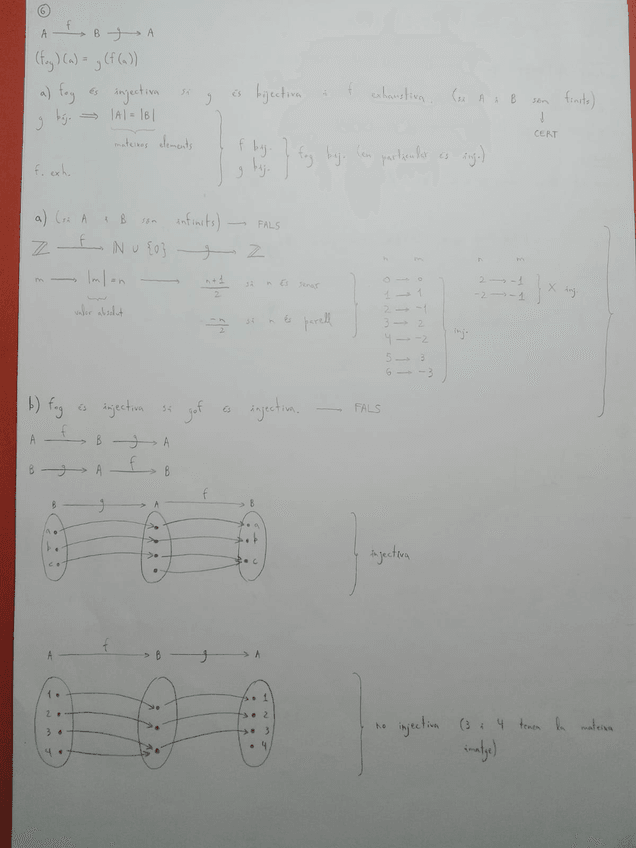 6
A f→ B g→ A
(fog)(a) = g(f(a))
a) fog és injectiva si g és bijectiva i f exhaustiva. (si A i B són finits)
↓
CERT
g bij. ⟹ |A| = |B|
mateixos elements
f. exh.
f bij.
g bij.
fog bij. (en particular és inj.)
a) (si A i B són infinits) → FALS
ℤ f→ ℕ ∪ {0} g→ ℤ
m → |m| = n →
valor absolut
n+1/2 si n és senar
-n/2 si n és parell
n m
0 → 0
1 → 1
2 → -1
3 → 2
4 → -2
5 → 3
6 → -3
inj.
n m
2 → -1
-2 → -1
X inj.
b) fog és injectiva si gof és injectiva. → FALS
A f→ B g→ A
B g→ A f→ B
B g→ A f→ B
a
b
c
a
b
c
injectiva
A f→ B g→ A
1
2
3
4
1
2
3
4
no injectiva (3 i 4 tenen la mateixa
imatge)